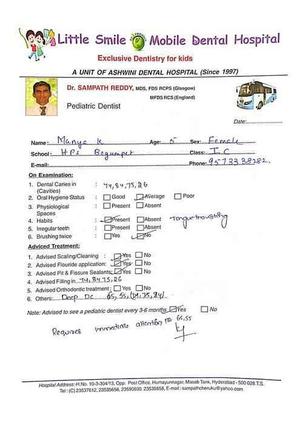 Little Smile Mobile Dental Hospital
Exclusive Dentistry for kids
A UNIT OF ASHWINI DENTAL HOSPITAL (Since 1997)
Dr. SAMPATH REDDY, MDS, FDS RCPS (Glasgow)
MFDS RCS (England)
Pediatric Dentist
Date:
Name: Manya K Age: 5 Sex: Female
School: HPS Begumpet Class: I C
E-mail: Phone: 9573338282
On Examination:
1. Dental Caries in : 74,84,75,26
(Cavities)
2. Oral Hygiene Status : Good Average Poor
3. Physiological : Present Absent
Spaces
4. Habits : Present Absent Tongue thrusting
5. Irregular teeth : Present Absent
6. Brushing twice : Yes No
Advised Treatment:
1. Advised Scaling/Cleaning : Yes No
2. Advised Flouride application: Yes No
3. Advised Pit & Fissure Sealants: Yes No
4. Advised Filling in 74,84,75,26
5. Advised Orthodontic treatment : Yes No
6. Others: Deep DC 65,55, (74,75,84)
Note: Advised to see a pediatric dentist every 3-6 months Yes No
Requires immediate attention 65,55
Hospital Address: H.No. 10-3-304/13, Opp. Post Office, Humayunnagar, Masab Tank, Hyderabad - 500 028 T.S.